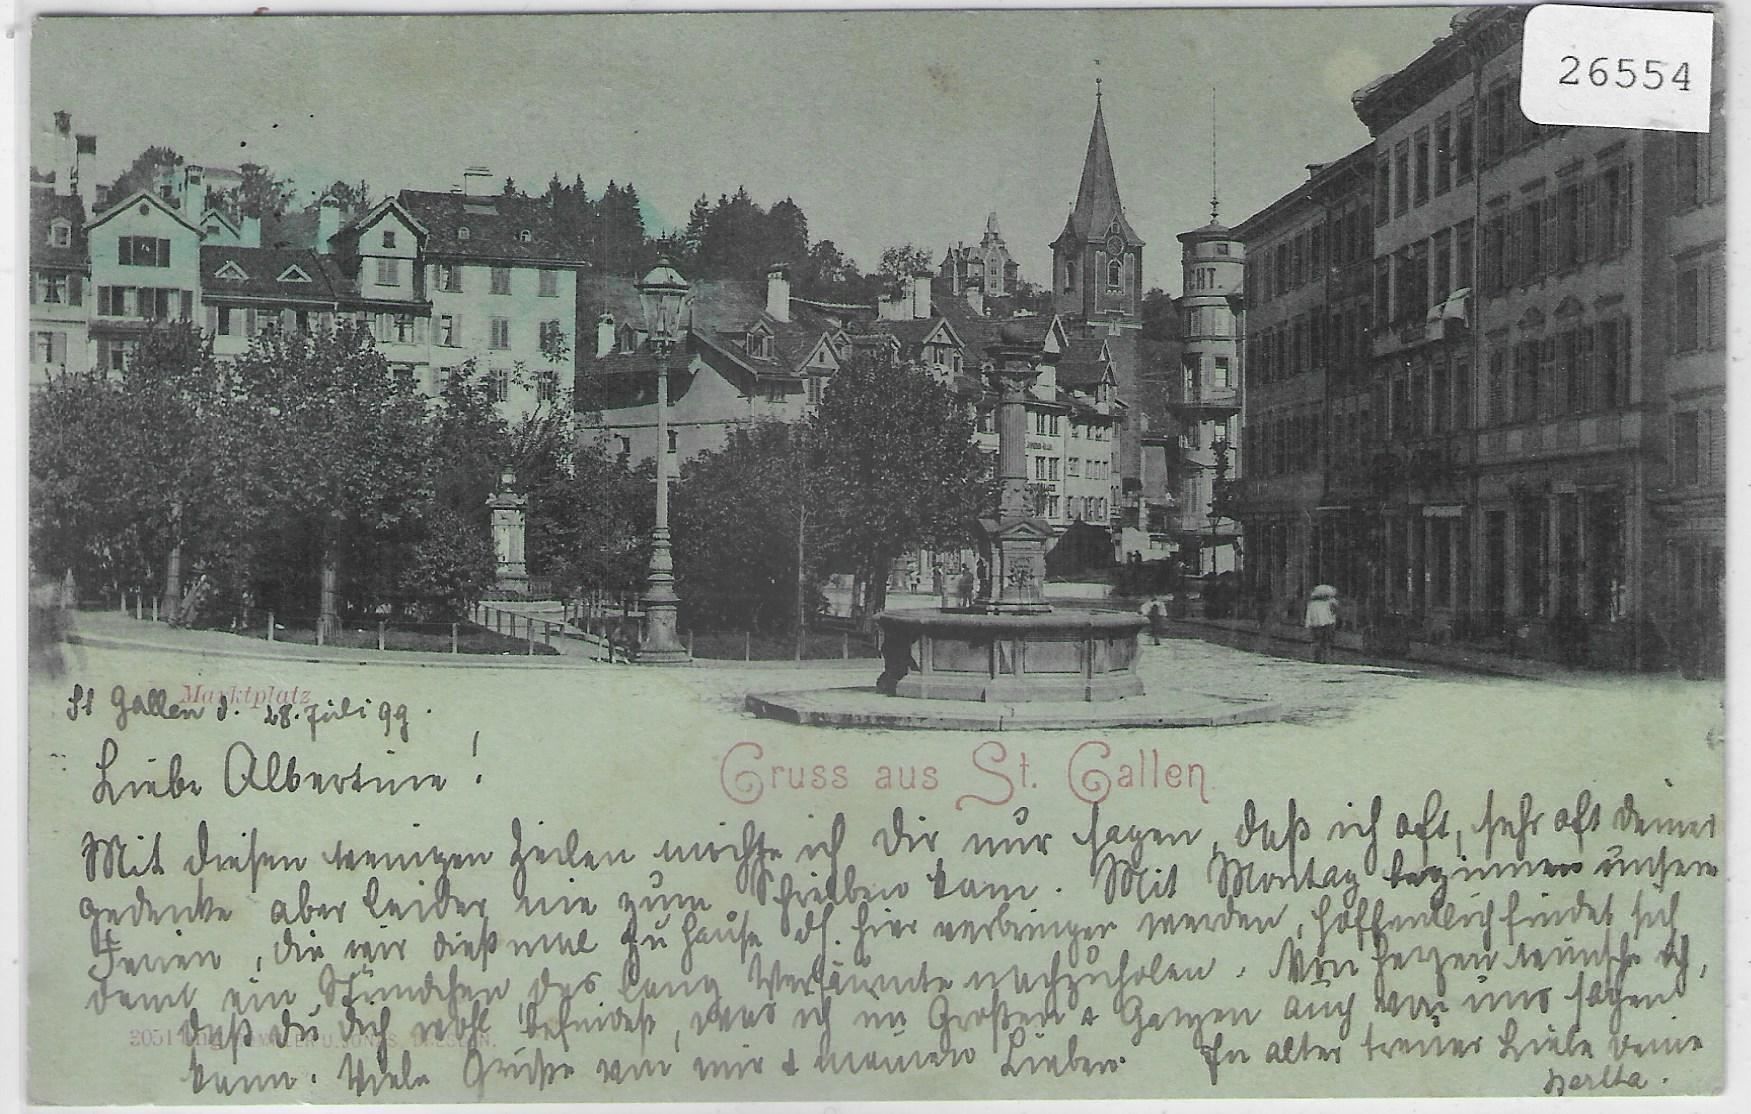 26554
Marktplatz
St Gallen d. 28. Juli 99.
Gruss aus St. Gallen
Liebe Albertine!
Mit diesen wenigen Zeilen möchte ich Dir nur sagen, daß ich oft, sehr oft deiner
gedenke aber leider nie zum Schreiben kam. Mit Montag beginnen unsere
Ferien, die wir dießmal zu Hause dh. hier verbringen werden, hoffentlich findet sich
dann ein Stündchen das lang Versäumte nachzuholen. Von Herzen wünsche ich,
daß du dich wohl befindest, was ich im Großen & Ganzen auch von uns sagen
kann. Viele Grüße von mir & meinen Lieben. In alter treuer Liebe deine